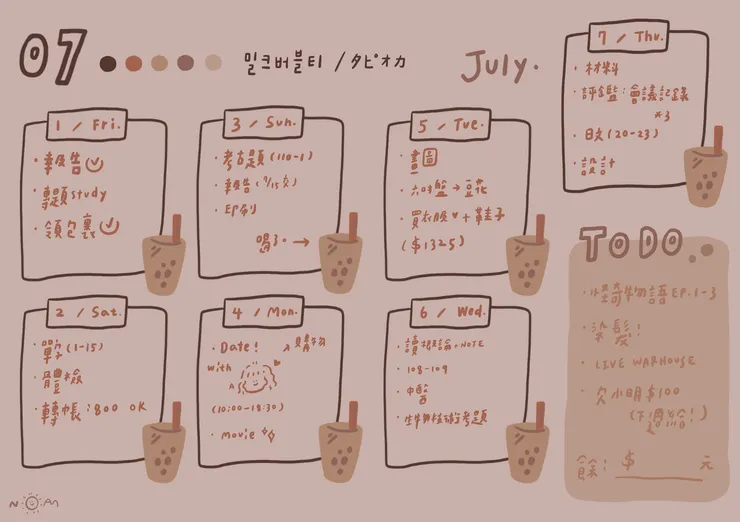 07
밀크버블티 / タピオカ
July.
1 / Fri.
・報告
・專題study
・領包裹
2 / Sat.
・單字(1-15)
・體檢
・轉帳:800 OK
3 / Sun.
・考古題(110-1)
・報告(9/15交)
・印刷
喝了. →
4 / Mon.
・Date! 購物
with
(10:00-18:30)
・movie
5 / Tue.
・畫圖
・六吋盤→豆花
・買衣服♥+鞋子
($1325)
6 / Wed.
・讀概論+NOTE
・108-109
・中醫
・生物技術考題
7 / Thu.
・材料
・評鑑:會議記錄
*3
・日文(20-23)
・設計
TODO.
・怪奇物語EP.1-3
・染髮!
・LIVE WARHOUSE
・欠小明$100
(下週給!)
餘:$ 元
NOAN